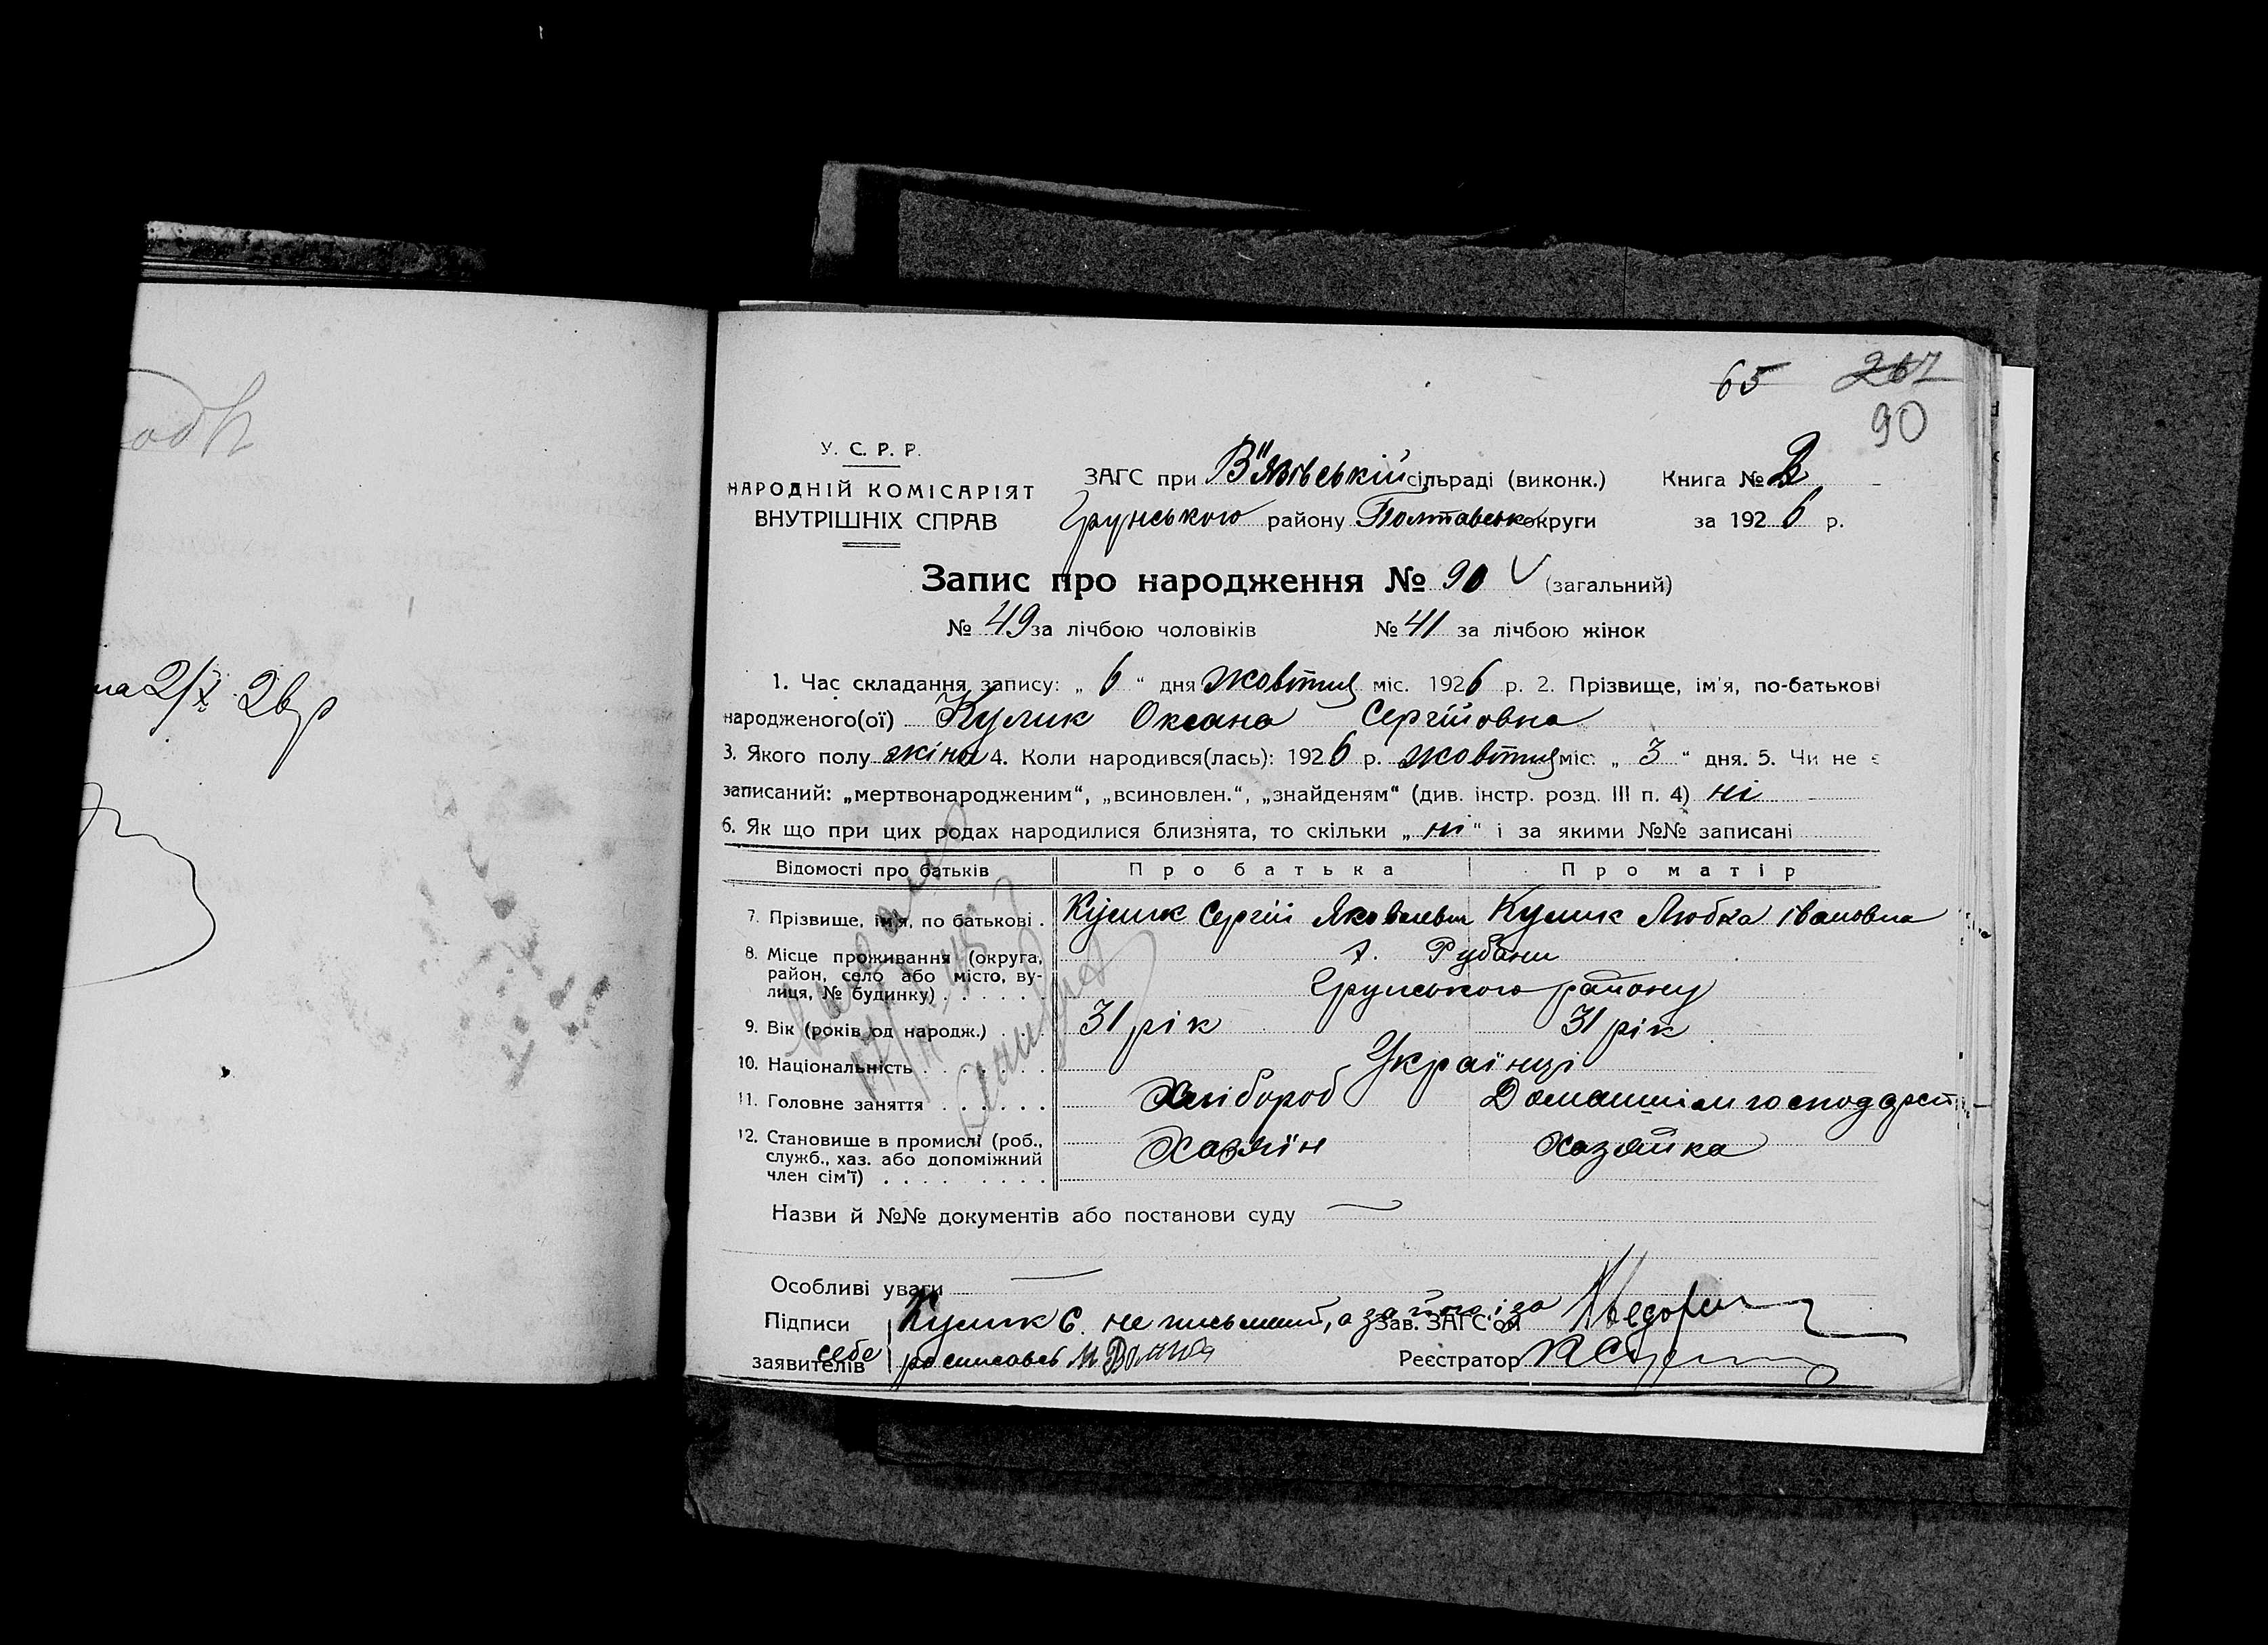 65 267
90
У. С. Р. Р.
НАРОДНІЙ КОМІСАРІЯТ
ВНУТРІШНІХ СПРАВ
ЗАГС при В"язівській сільраді (виконк.) Книга № 2
Грунського району Полтавсько округи за 1926 р.
Запис про народження № 90 (загальний)
№ 49 за лічбою чоловіків № 41 за лічбою жінок
1. Час складання запису: „ 6 “ дня жовтня міс. 1926 р. 2. Прізвище, ім'я, по-батькові
народженого(ої) Кулик Оксана Сергійовна
3. Якого полу жіно 4. Коли народився(лась): 1926 р. жовтня міс: „ 3 “ дня. 5. Чи не є
записаний: „мертвонародженим“, „всиновлен.“, „знайденям“ (див. інстр. розд. III п. 4) ні
6. Як що при цих родах народилися близнята, то скільки „ ні “ і за якими №№ записані
Відомості про батьків Про батька Про матір
7. Прізвище, ім'я, по батькові . Кулик Сергій Яковлевич Кулик Любка Івановна
8. Місце проживання (округа, район, село або місто, вулиця, № будинку) х. Рубани
Грунського району
9. Вік (років од народж.) 31 рік 31 рік
10. Національність Українці
11. Головне заняття Хлібороб Домашнім господарст
12. Становище в промислі (роб., служб., хаз. або допоміжний член сім'ї) Хазяїн Хазяйка
Назви й №№ документів або постанови суду
Особливі уваги
Підписи Кулик С. не письмений, а за його і за Зав. ЗАГС'ом
заявителів себе росписавсь М Реєстратор
на 2/X 26 р